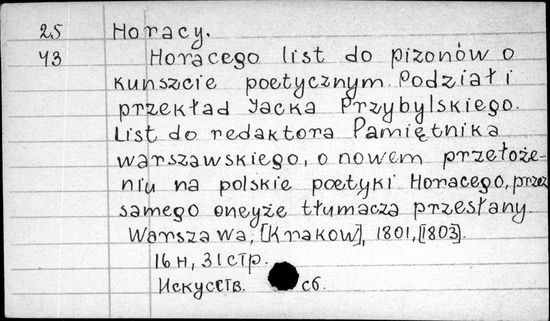 25 Horacy.
43 Horacego list do pizonów o
kunszcie poetycznym. Podział i
przekład Jacka Przybylskiego.
List do redaktora Pamiętnika
warszawskiego, o nowem przełoże-
niu na polskie poetyki Horacego, przez
samego oneyże tłumacza przesłany.
Warszawa, [Krakow], 1801, [1803].
16 н, 31 стр.
Искусств. сб.